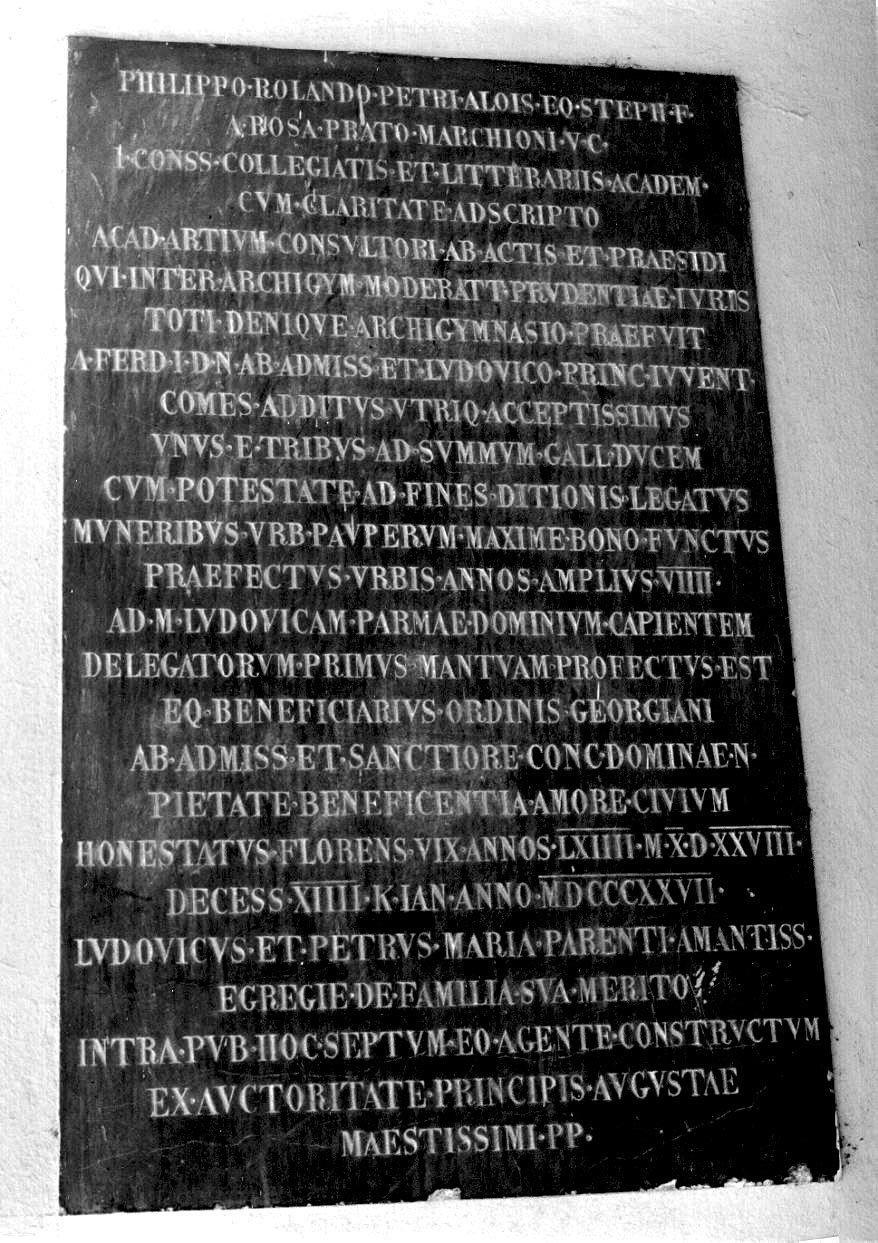 PHILIPPO·ROLANDO·PETRI·ALOIS·EQ·STEPH·F·
A·ROSA·PRATO·MARCHIONI·V·C·
I·CONSS·COLLEGIATIS·ET·LITTERARIIS·ACADEM·
CVM·CLARITATE·ADSCRIPTO
ACAD·ARTIVM·CONSVLTORI·AB·ACTIS·ET·PRAESIDI
QVI·INTER·ARCHIGYM·MODERATT·PRVDENTIAE·IVRIS
TOTI·DENIQVE·ARCHIGYMNASIO·PRAEFVIT
A·FERD·I·D·N·AB·ADMISS·ET·LVDOVICO·PRINC·IVVENT·
COMES·ADDITVS·VTRIQ·ACCEPTISSIMVS
VNVS·E·TRIBVS·AD·SVMMVM·GALL·DVCEM
CVM·POTESTATE·AD·FINES·DITIONIS·LEGATVS
MVNERIBVS·VRB·PAVPERVM·MAXIME·BONO·FVNCTVS
PRAEFECTVS·VRBIS·ANNOS·AMPLIVS·VIIII·
AD·M·LVDOVICAM·PARMAE·DOMINIVM·CAPIENTEM
DELEGATORVM·PRIMVS·MANTVAM·PROFECTVS·EST
EQ·BENEFICIARIVS·ORDINIS·GEORGIANI
AB·ADMISS·ET·SANCTIORE·CONC·DOMINAE·N·
PIETATE·BENEFICENTIA·AMORE·CIVIVM
HONESTATVS·FLORENS·VIX·ANNOS·LXIIII·M·X·D·XXVIII·
DECESS·XIIII·K·IAN·ANNO·MDCCCXXVII·
LVDOVICVS·ET·PETRVS·MARIA·PARENTI·AMANTISS·
EGREGIE·DE·FAMILIA·SVA·MERITO
INTRA·PVB·HOC·SEPTVM·EO·AGENTE·CONSTRVCTVM
EX·AVCTORITATE·PRINCIPIS·AVGVSTAE
MAESTISSIMI·PP·